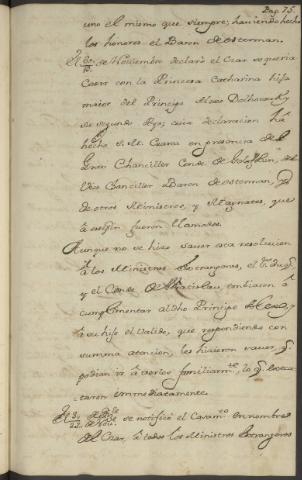 Pag. 75.
uno el mismo que siempre; haviendo hecho
los honores el Baron de Osterman.
de Noviembre declarò el Czar se queria
Casar con la Princesa Catharina hija
maior del Principe Alexo Dolhorouky
su segundo Ayo; cuia declaracion ha
hecho S. M. Czarea en presencia del
Gran Chanciller Conde de Golofkin, del
Vice Chanciller Baron de Osterman, y
de otros Ministros y Magnates, que
à este fin fueron llamados.
Aunque no se hizo saver esta resolucion
à los Ministros Extrangeros, el
y el Conde de Wratislau, embiaron à
cumplimentar al dho Principe Alexo, y
à su hijo el Valido, que respondiendo con
summa atencion, les hicieron saver, q.
podian ir à verlos familiarm.te, lo q. executaron
immediatamente.
se notificò el Casam.to en nombre
del Czar, à todos los Ministros Extrangeros